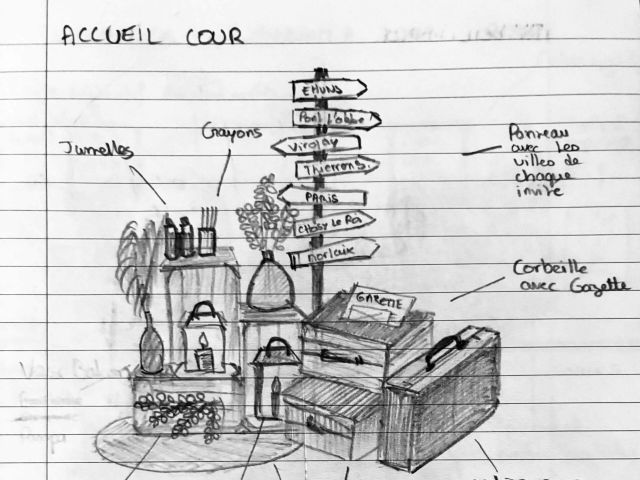 ACCUEIL COUR
EHUNS
Pont L'abbé
Viroflay
Thierrens.
PARIS
Choisy Le Roi
Morlaix
Crayons
Jumelles
Panneau
avec les
villes de
chaque
invité
Corbeille
avec Gazette
GAZETTE